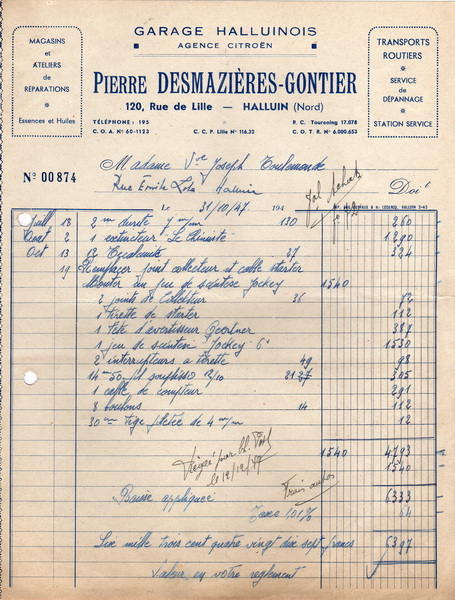 GARAGE HALLUINOIS
AGENCE CITROËN
MAGASINS
et
ATELIERS
de
RÉPARATIONS
Essences et Huiles
TRANSPORTS
ROUTIERS
SERVICE
de
DÉPANNAGE
STATION SERVICE
PIERRE DESMAZIÈRES-GONTIER
120, Rue de Lille — HALLUIN (Nord)
TÉLÉPHONE : 195
C. O. A. Nº 60-1123
C. C. P. Lille Nº 116.32
R. C. Tourcoing 17.078
C. O. T. R. Nº 6.000.653
Nº 00874
Madame Vve Joseph Toulemonde
Rue Emile Zola Halluin
Doit
Le 31/10/47 194
Juill 18 2 m durite 130 260
Aout 2 1 extincteur 1290
Oct 13 12 27 324
19 Remplacer joint collecteur et cable starter
Monter un jeu de Jockey 1540
2 joints de collecteur 36 72
1 tirette de starter 112
1 Tête d'avertisseur 387
1 jeu de Jockey 6 1530
2 interrupteurs a tirette 49 98
14m50 fil 12/10 305
1 cable de compteur 291
8 boulons 14 112
Tige filetée de 4 m/m 12
1540 4793
1540
le 12/12/47
Baisse appliquée 6333
Taxe 1,01% 64
Six mille trois cent quatre vingt dix sept francs 6397
Valeur en votre reglement